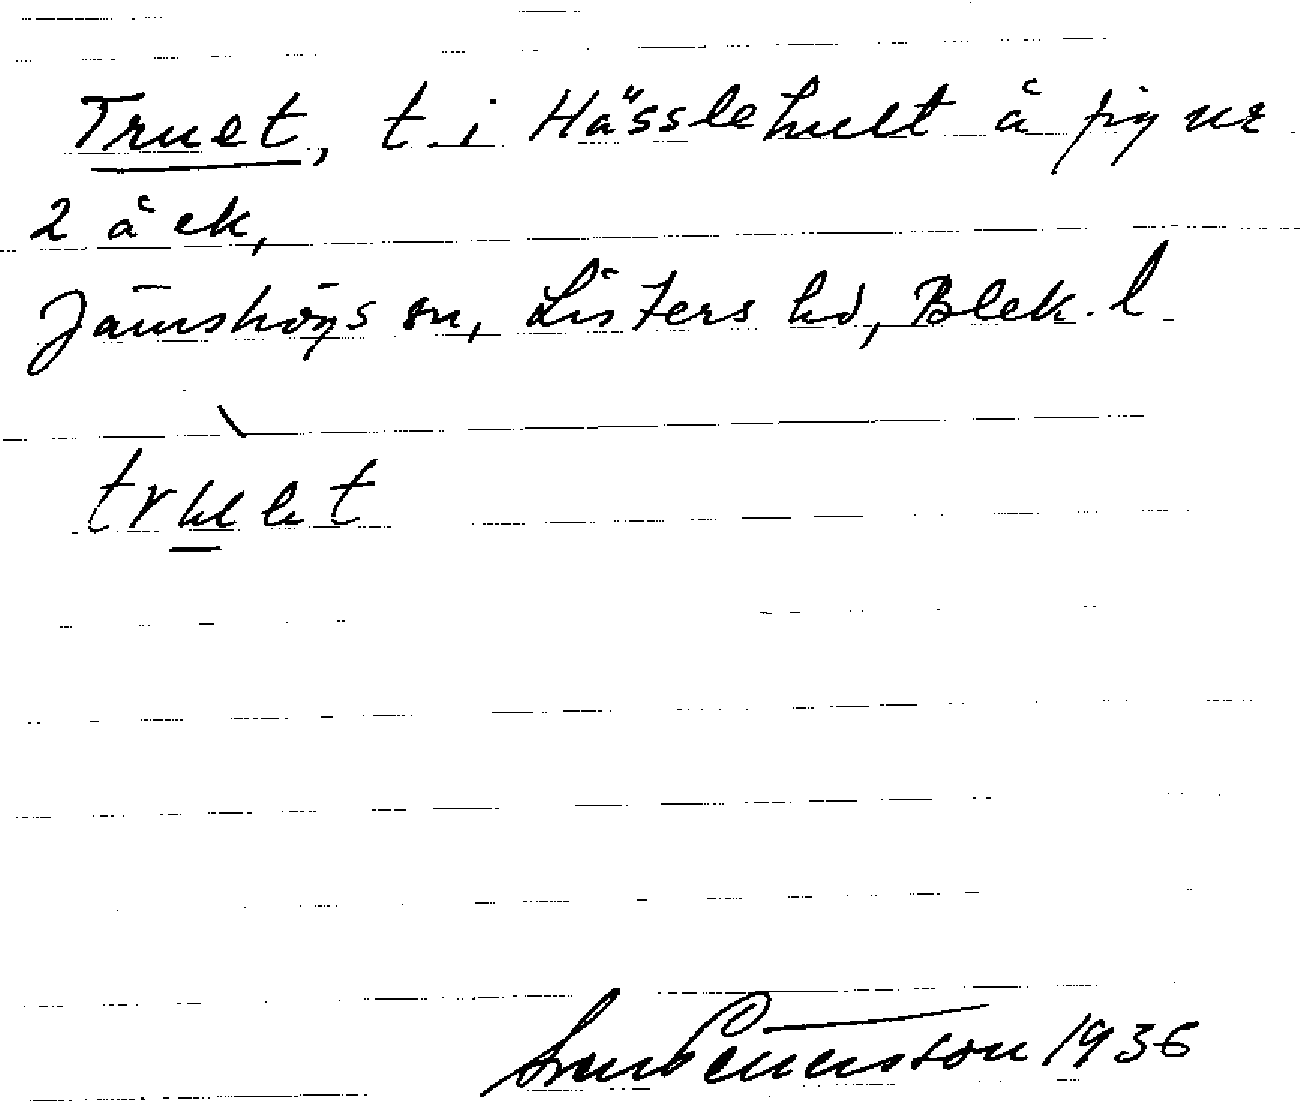 Truet, t. i Hässlehult å fig nr
2 å ek,
Jämshögs sn, Listers hd, Blek. l.
truet
1936